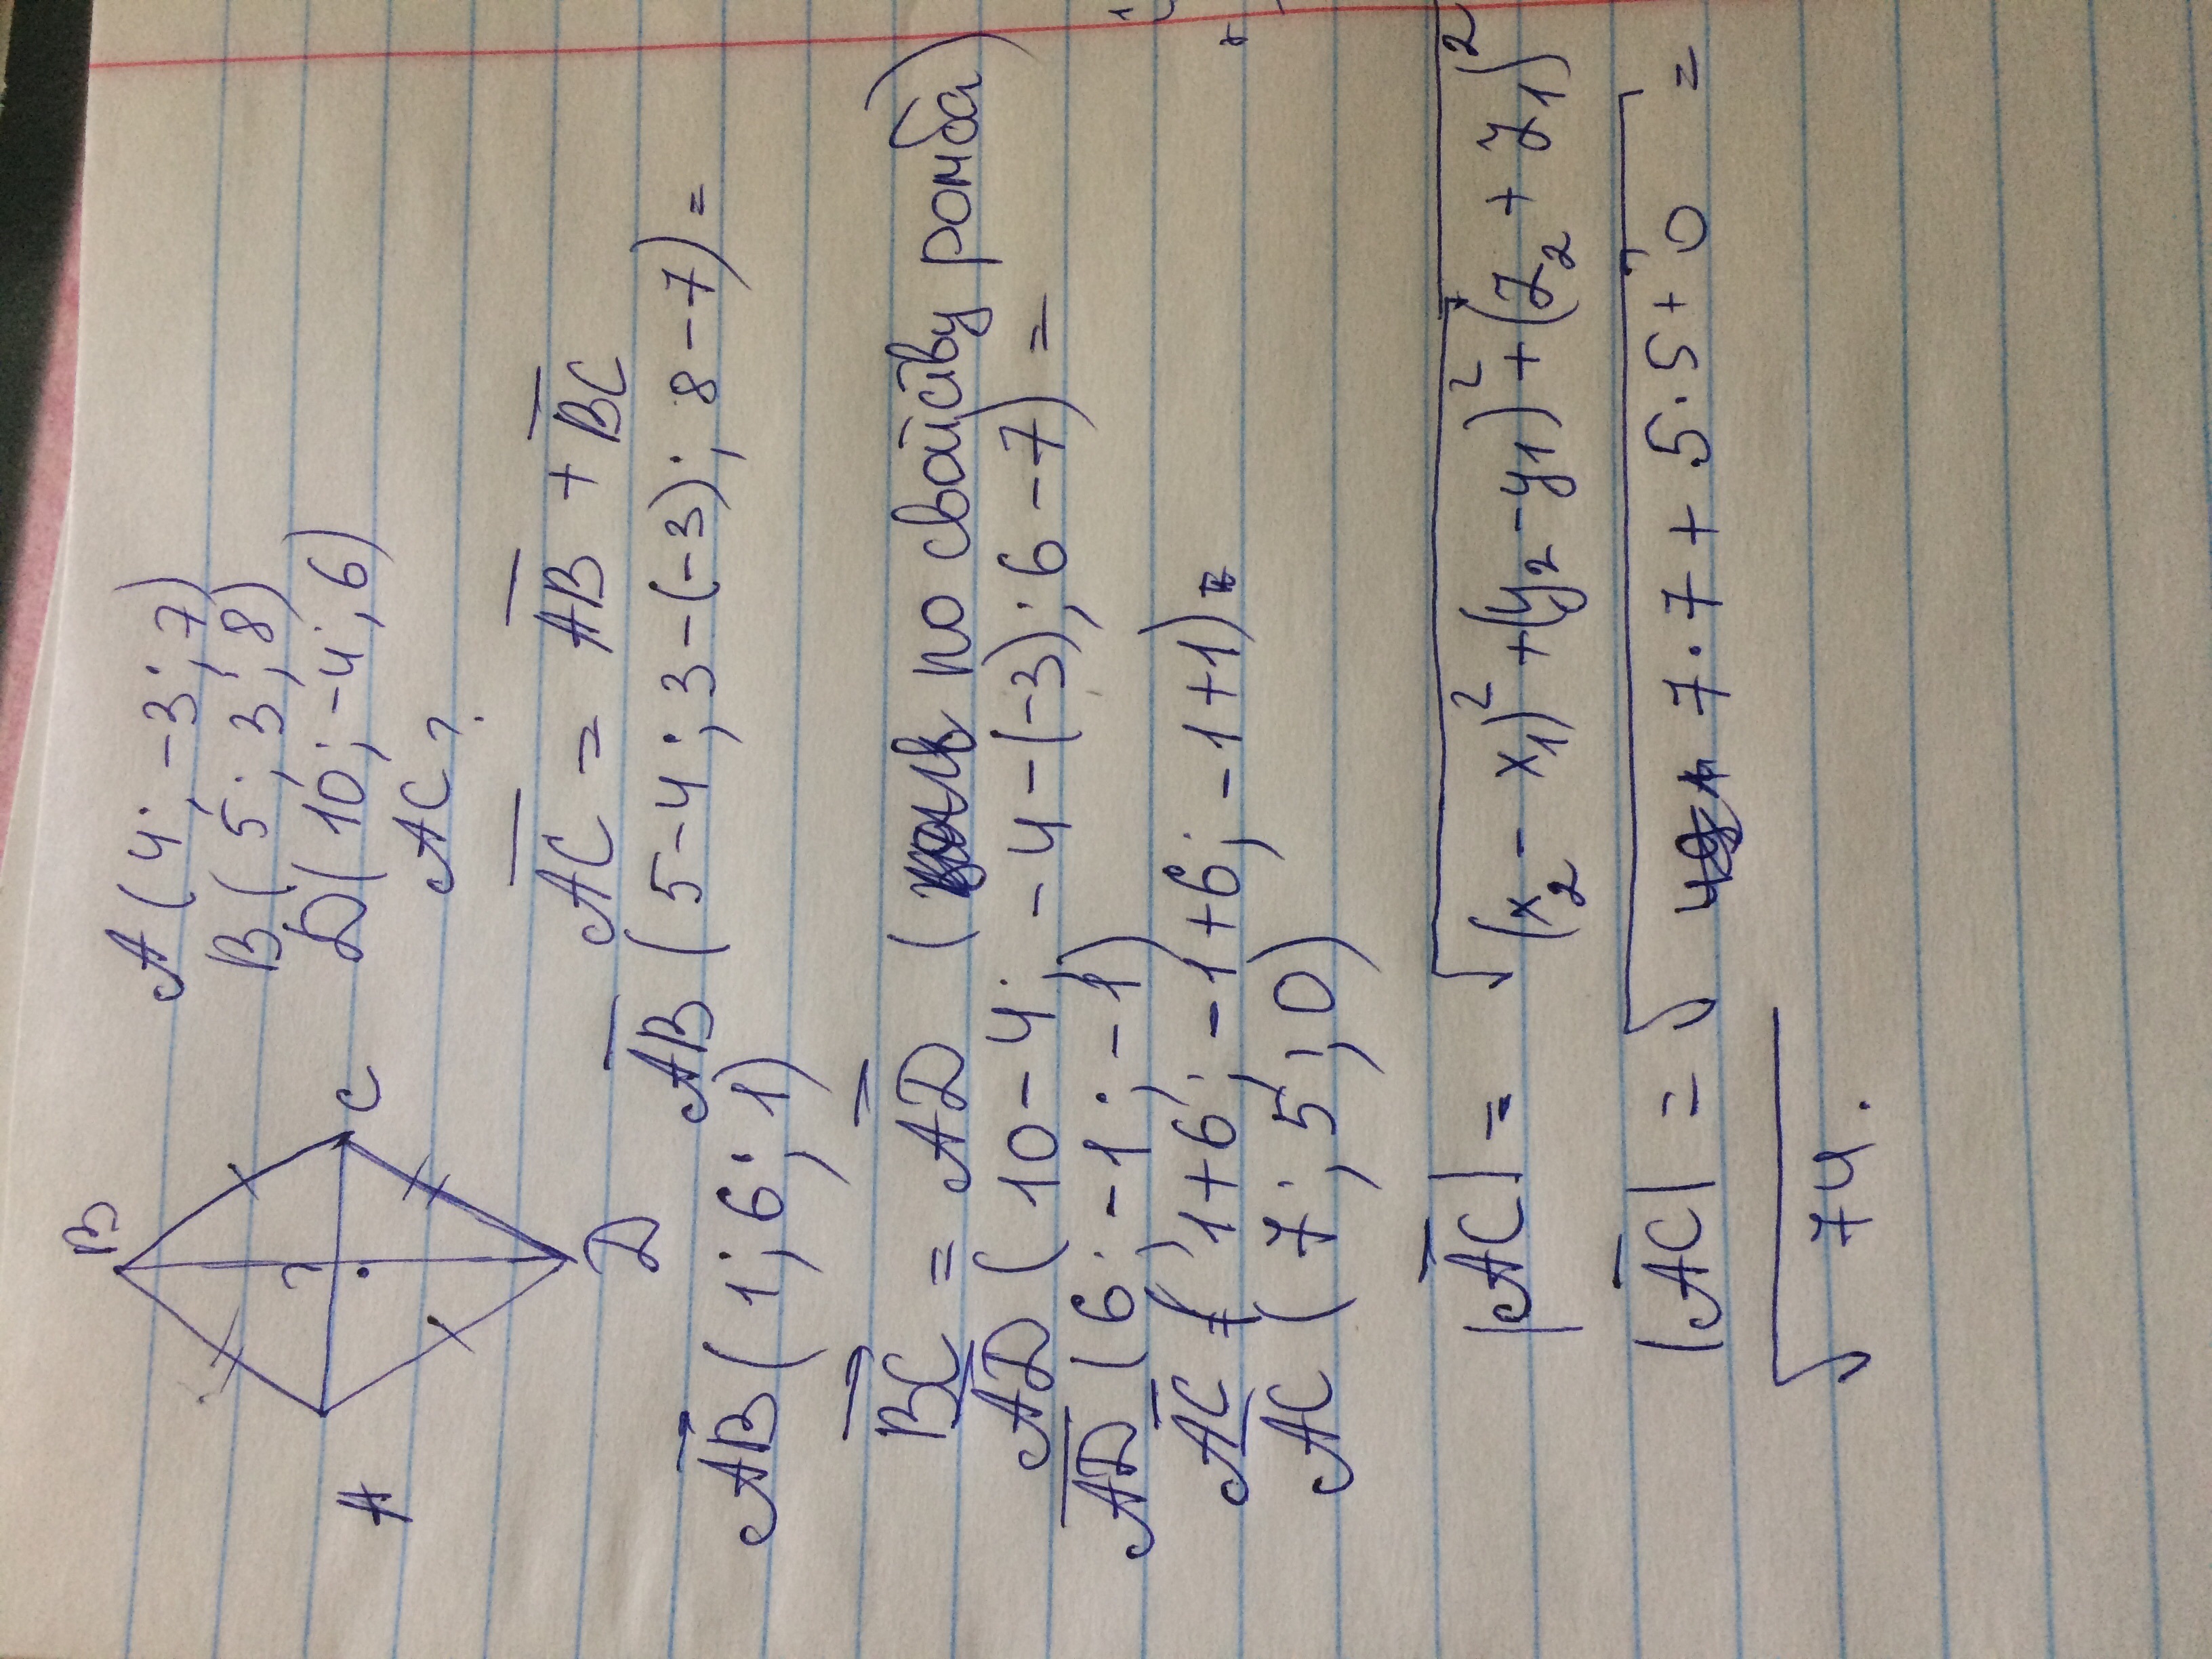 B
C
A
D
A (4; -3; 7)
B (5; 3; 8)
D (10; -4; 6)
AC?
AC = AB + BC
AB (5-4; 3-(-3); 8-7) =
AB (1; 6; 1)
BC = AD ( по свойству ромба)
AD (10-4; -4-(-3); 6-7) =
AD (6; -1; -1)
AC (1+6; -1+6; -1+1)
AC (7; 5; 0)
|AC| = √(x₂ - x₁)² + (y₂ - y₁)² + (z₂ + z₁)²
|AC| = √7·7 + 5·5 + 0 =
√74.